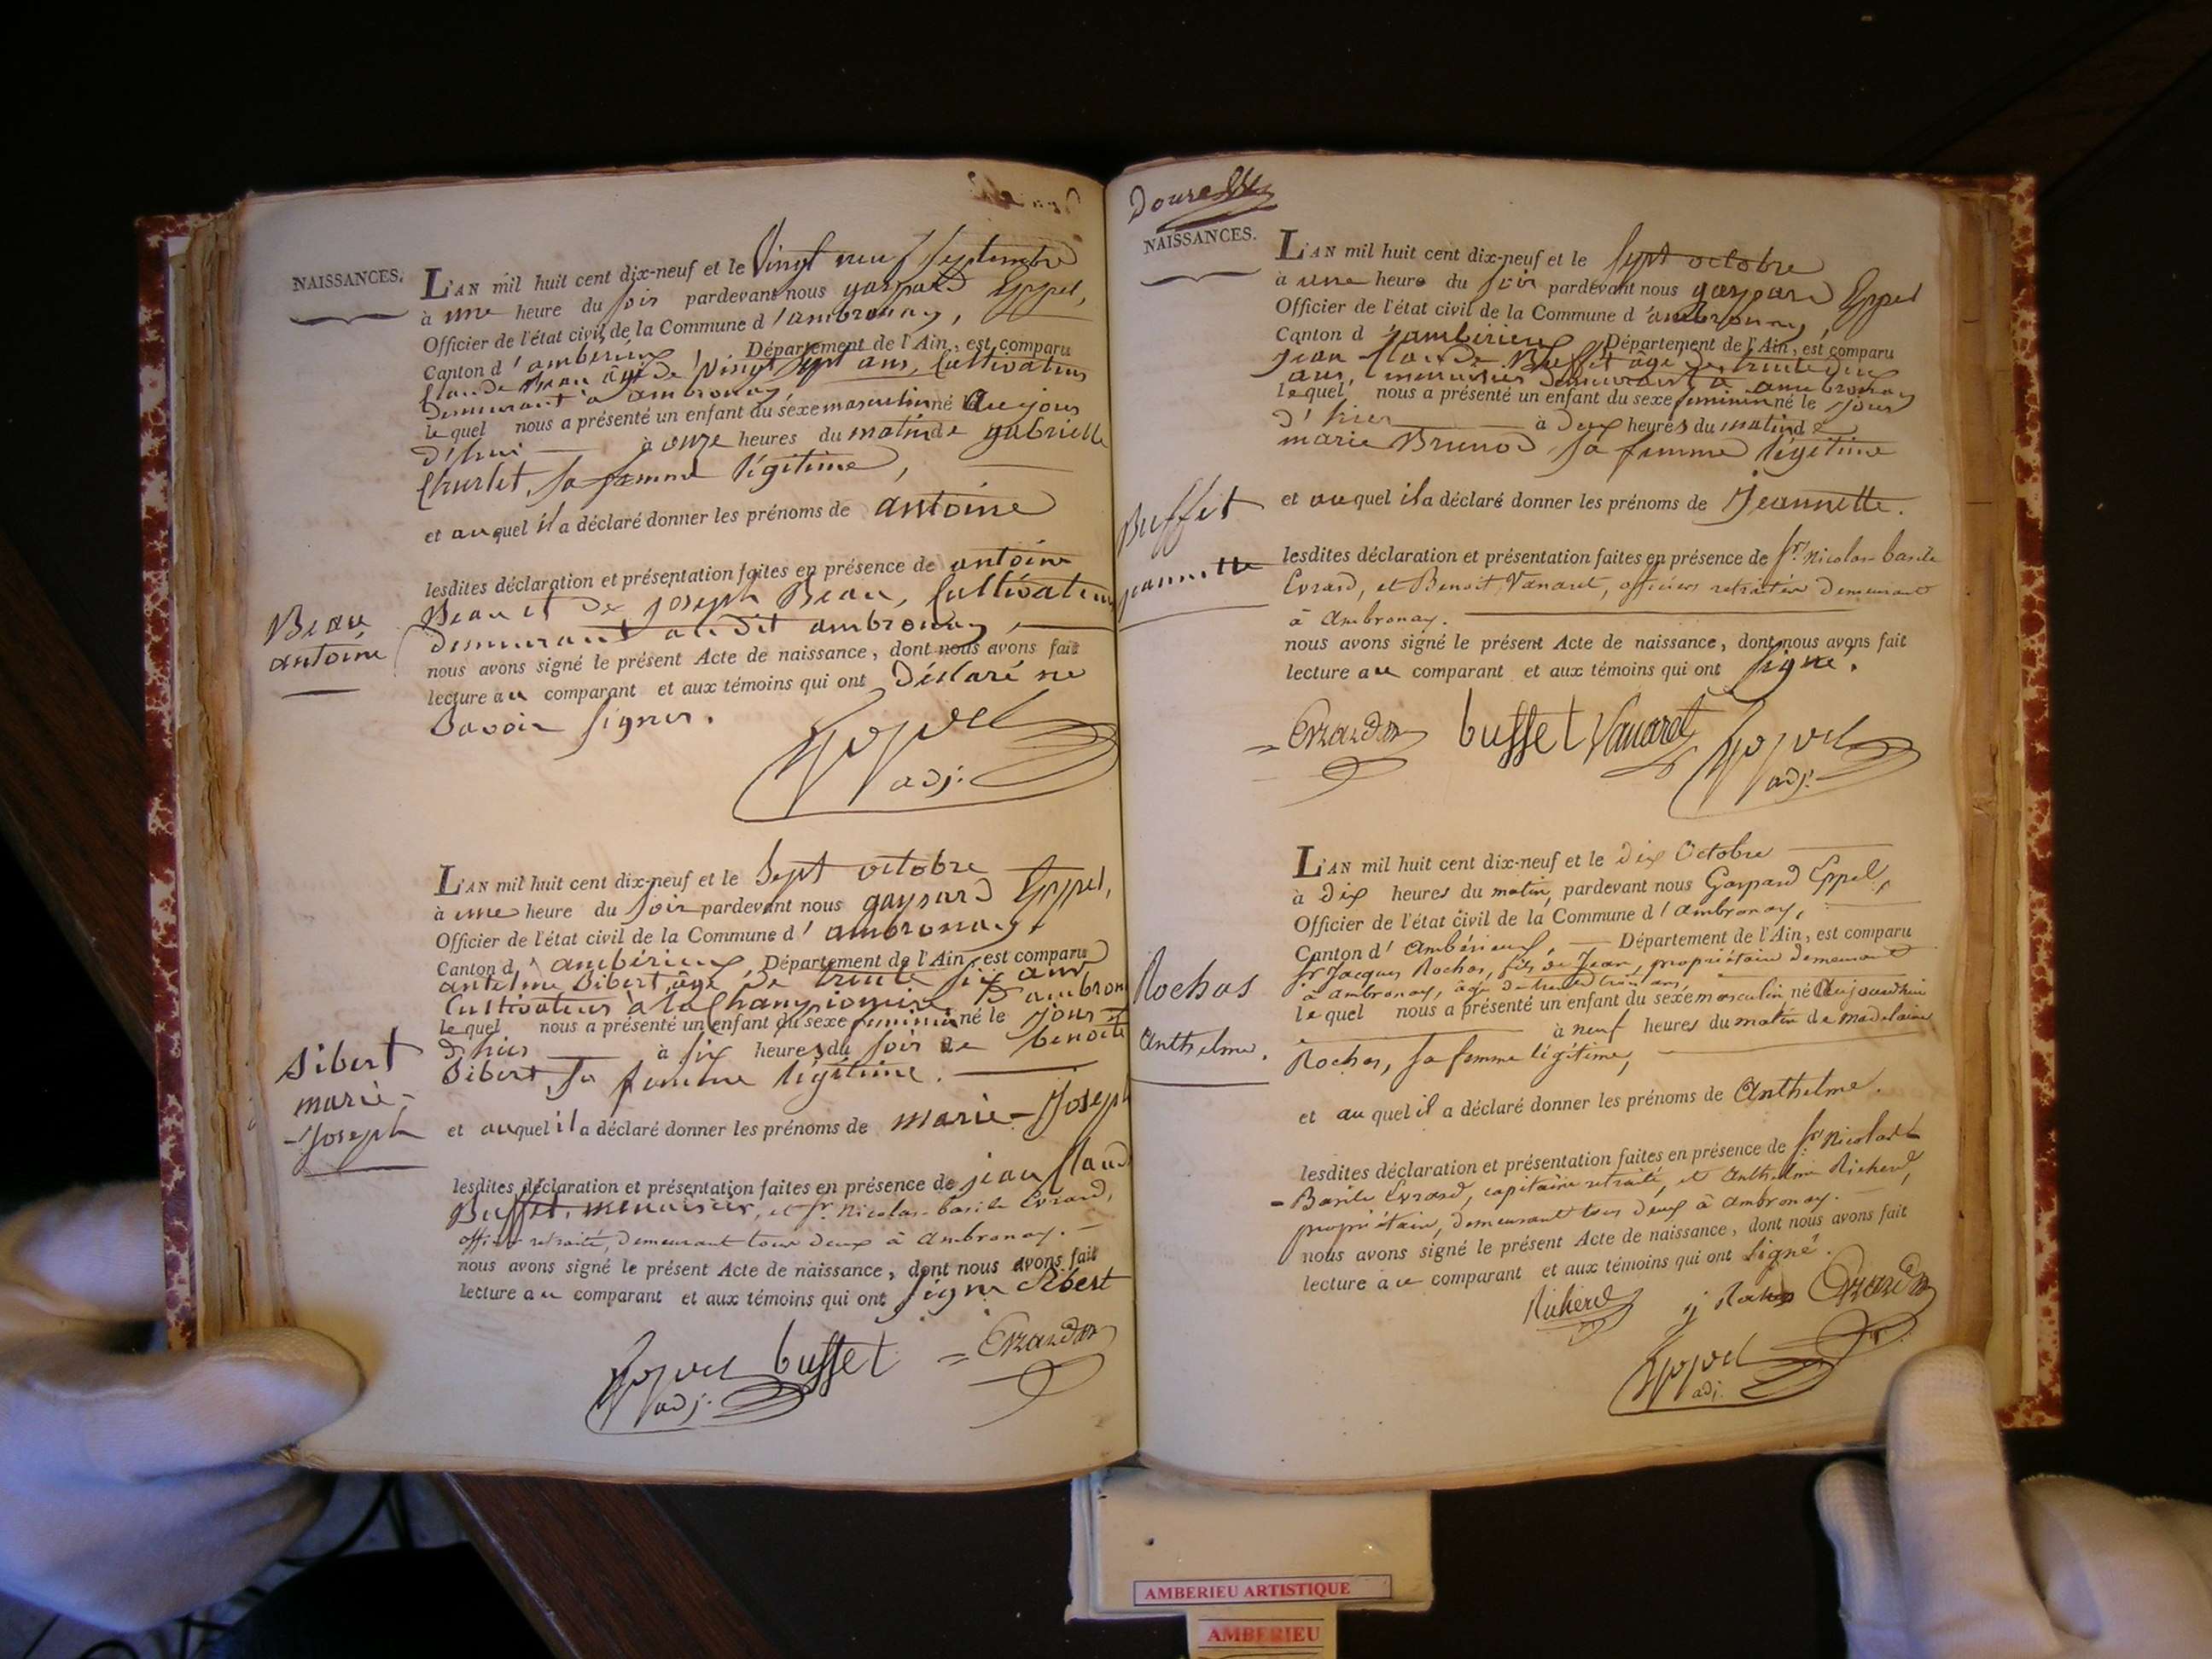 NAISSANCES.
L'AN mil huit cent dix-neuf et le Vingt neuf Septembre
à une heure du soir pardevant nous gaspard Eppel,
Officier de l'état civil de la Commune d'ambronay,
Canton d'ambérieux Département de l'Ain, est comparu
Claude Beau âgé de vingt sept ans, Cultivateur
Demeurant à ambronay,
lequel nous a présenté un enfant du sexe masculin né aujour
d'hui à onze heures du matin de gabrielle
Churlet, sa femme légitime,
et auquel il a déclaré donner les prénoms de antoine
lesdites déclaration et présentation faites en présence de antoine
Beau et de joseph Beau, Cultivateurs
Demeurant audit ambronay,
nous avons signé le présent Acte de naissance, dont nous avons fait
lecture au comparant et aux témoins qui ont Déclaré ne
Savoir signer.
Beau
antoine
Eppel
adj.
L'AN mil huit cent dix-neuf et le Sept octobre
à une heure du soir pardevant nous gaspard Eppel,
Officier de l'état civil de la Commune d'ambronay,
Canton d'ambérieux, Département de l'Ain, est comparu
antelme Sibert, âgé de trente six ans
Cultivateur à la Championière D'ambron
lequel nous a présenté un enfant du sexe feminin né le jour
d'hier à six heures du soir de benoite
Sibert, sa femme légitime.
et auquel il a déclaré donner les prénoms de marie-Joseph
lesdites déclaration et présentation faites en présence de jean Claud
Buffet, menuisier, et Sr. Nicolas-basile Evrard,
officier retraité, demeurant tous deux à Ambronay.
nous avons signé le présent Acte de naissance, dont nous avons fait
lecture au comparant et aux témoins qui ont signé Sibert
Sibert
marie-
-Joseph
Eppel buffet Evrard
adj.
NAISSANCES.
L'AN mil huit cent dix-neuf et le Sept octobre
à une heure du soir pardevant nous gaspard Eppel
Officier de l'état civil de la Commune d'ambronay,
Canton d'ambérieux, Département de l'Ain, est comparu
jean Claude Buffet âgé de trente
ans, menuisier Demeurant à ambronay
lequel nous a présenté un enfant du sexe feminin né le jour
d'hier à Deux heures du matin de
marie Brunod sa femme légitime
et auquel il a déclaré donner les prénoms de Jeannette.
lesdites déclaration et présentation faites en présence de Sr. Nicolas basile
Evrard, et Benoit Vanaret, officiers retraités demeurant
à Ambronay.
nous avons signé le présent Acte de naissance, dont nous avons fait
lecture au comparant et aux témoins qui ont signé.
Buffet
jeannette
Evrard buffet Vanaret Eppel
adj.
L'AN mil huit cent dix-neuf et le Dix Octobre
à Dix heures du matin, pardevant nous Gaspard Eppel,
Officier de l'état civil de la Commune d'Ambronay,
Canton d'Ambérieux, Département de l'Ain, est comparu
Sr Jacques Rochas, fils de Jean, propriétaire demeurant
à ambronay, âgé de trente trois ans,
lequel nous a présenté un enfant du sexe masculin, né aujourdhui
à neuf heures du matin de madelaine
Rochas, sa femme légitime,
et auquel il a déclaré donner les prénoms de Anthelme.
lesdites déclaration et présentation faites en présence de Sr. Nicolas
-Basile Evrard, capitaine retraité, et Anthelme Richerd,
propriétaire, demeurant tous deux à Ambronay.
nous avons signé le présent Acte de naissance, dont nous avons fait
lecture au comparant et aux témoins qui ont signé.
Rochas
Anthelme.
Richerd j Rochas Evrard
Eppel
adj.
AMBERIEU ARTISTIQUE
AMBERIEU